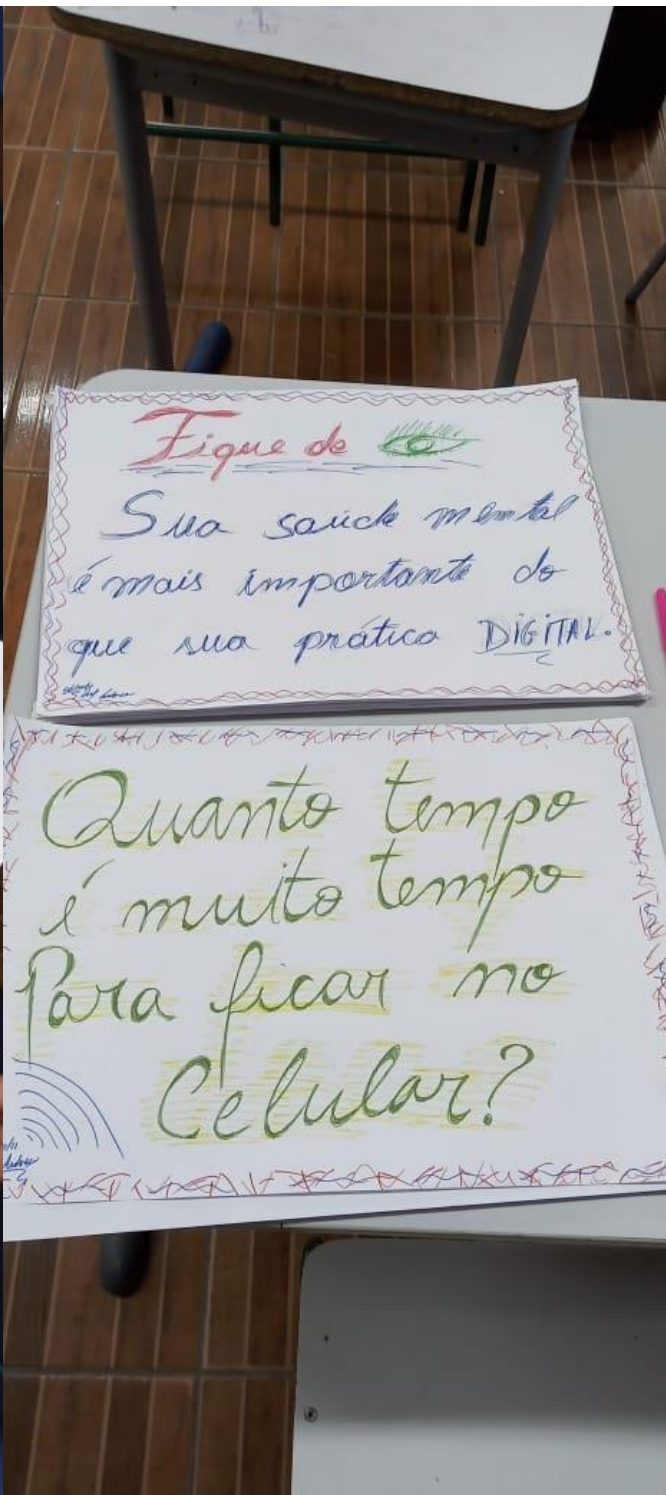 Fique de
Sua saúde mental
é mais importante do
que sua prática DIGITAL.
Quanto tempo
é muito tempo
Para ficar no
Celular?